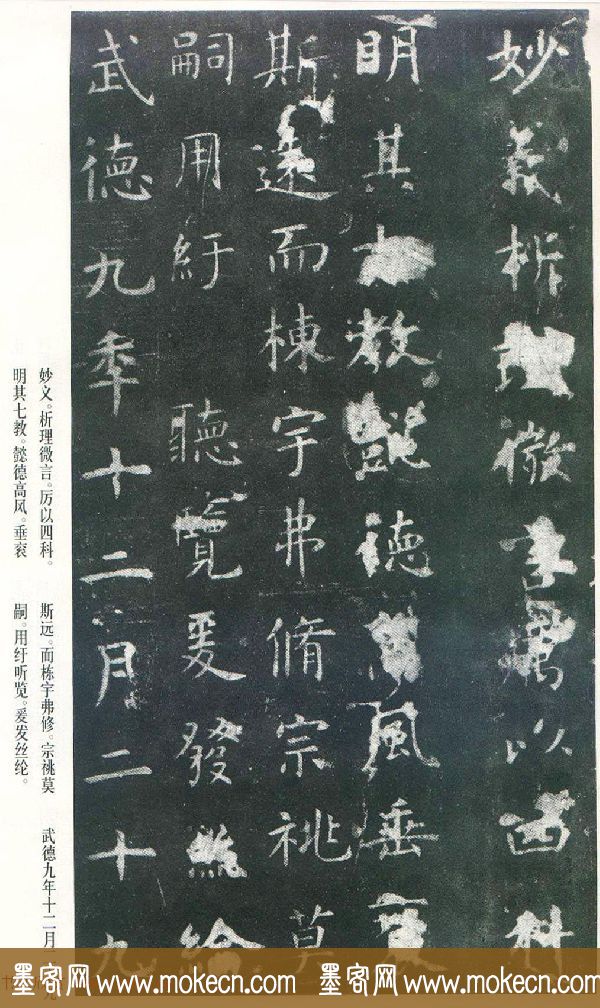 妙義析理微言厲以四科
明其七教懿德高風垂裒
斯遠而棟宇弗脩宗祧莫
嗣用紆 聽覽爰發絲綸
武德九秊十二月二十九
妙义。析理微言。厉以四科。
明其七教。懿德高风。垂裒
斯远。而栋宇弗修。宗祧莫
嗣。用纡听览。爰发丝纶。
武德九年十二月
墨客网 www.mokecn.com 墨客网 www.mokecn.com